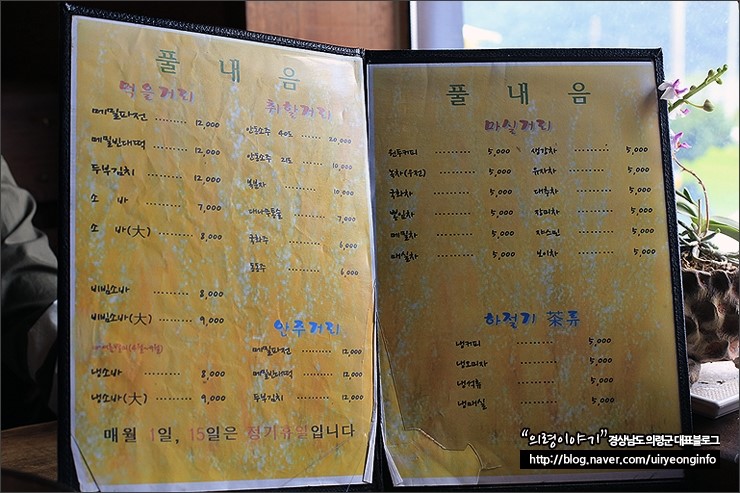 풀 내 음
먹을거리
메밀파전 ......... 12,000
메밀빈대떡 ......... 12,000
두부김치 ......... 12,000
소 바 ......... 7,000
소 바(大) ......... 8,000
비빔소바 ......... 8,000
비빔소바(大) ......... 9,000
냉소바 ......... 8,000
냉소바(大) ......... 9,000
취할거리
안동소주 40도 ...... 20,000
안동소주 21도 ...... 10,000
복분자 ......... 10,000
대나무통술 ...... 7,000
국화주 ......... 6,000
동동주 ......... 6,000
안주거리
메밀파전 ......... 12,000
메밀빈대떡 ......... 12,000
두부김치 ......... 12,000
매월 1일, 15일은 정기휴일입니다
풀 내 음
마실거리
원두커피 ......... 5,000
녹차(우전) ......... 5,000
국화차 ......... 5,000
뽕잎차 ......... 5,000
메밀차 ......... 5,000
매실차 ......... 5,000
생강차 ......... 5,000
유자차 ......... 5,000
대추차 ......... 5,000
장미차 ......... 5,000
쟈스민 ......... 5,000
보이차 ......... 5,000
하절기 茶류
냉커피 ......... 5,000
냉오미자 ......... 5,000
냉석류 ......... 5,000
냉매실 ......... 5,000
"의령이야기" 경상남도 의령군 대표블로그
http://blog.naver.com/uiryeonginfo